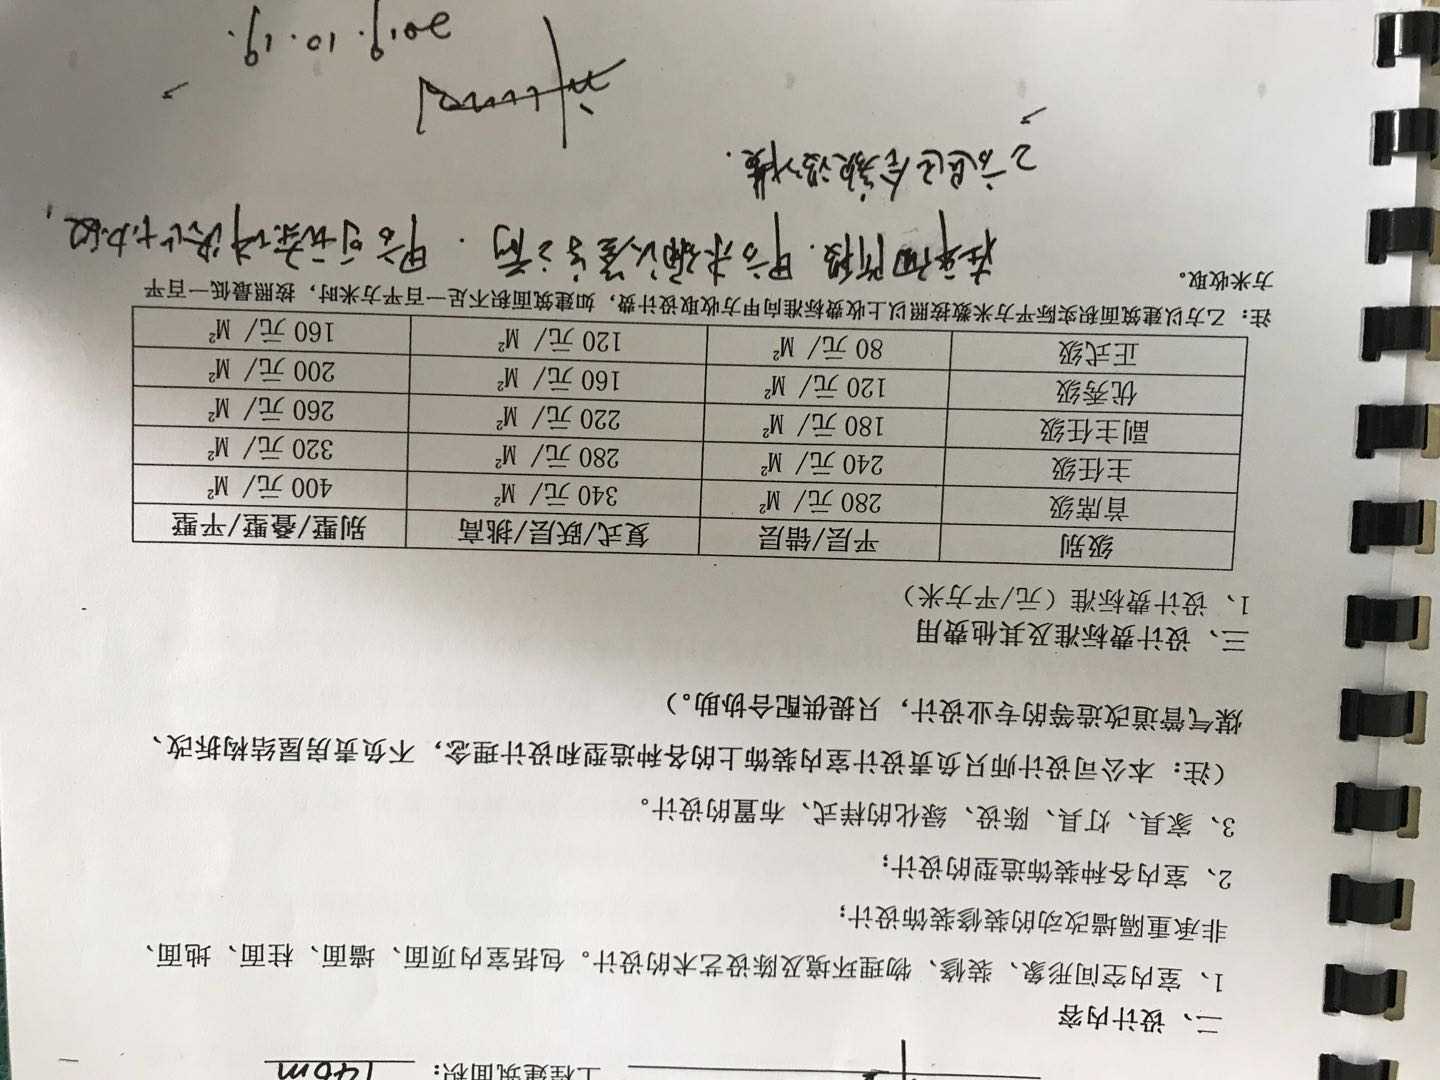 工程建筑面积: 140m
二、设计内容
1、室内空间形象、装修、物理环境及陈设艺术的设计。包括室内顶面、墙面、柱面、地面、
非承重隔墙改动的装修装饰设计;
2、室内各种装饰造型的设计;
3、家具、灯具、陈设、绿化的样式、布置的设计。
(注: 本公司设计师只负责设计室内装饰上的各种造型和设计理念, 不负责房屋结构拆改、
煤气管道改造等的专业设计, 只提供配合协助。)
三、设计费标准及其他费用
1、设计费标准 (元/平方米)
级别 平层/错层 复式/跃层/挑高 别墅/叠墅/平墅
首席级 280 元/ M² 340 元/ M² 400 元/ M²
主任级 240 元/ M² 280 元/ M² 320 元/ M²
副主任级 180 元/ M² 220 元/ M² 260 元/ M²
优秀级 120 元/ M² 160 元/ M² 200 元/ M²
正式级 80 元/ M² 120 元/ M² 160 元/ M²
注: 乙方以建筑面积实际平方米数按照以上收费标准向甲方收取设计费, 如建筑面积不足一百平方米时, 按照最低一百平
方米收取。
在平面阶段. 甲方未确认签字之前. 甲方可以要求终止协议,
乙方退还全额设计费.
2019.10.19.